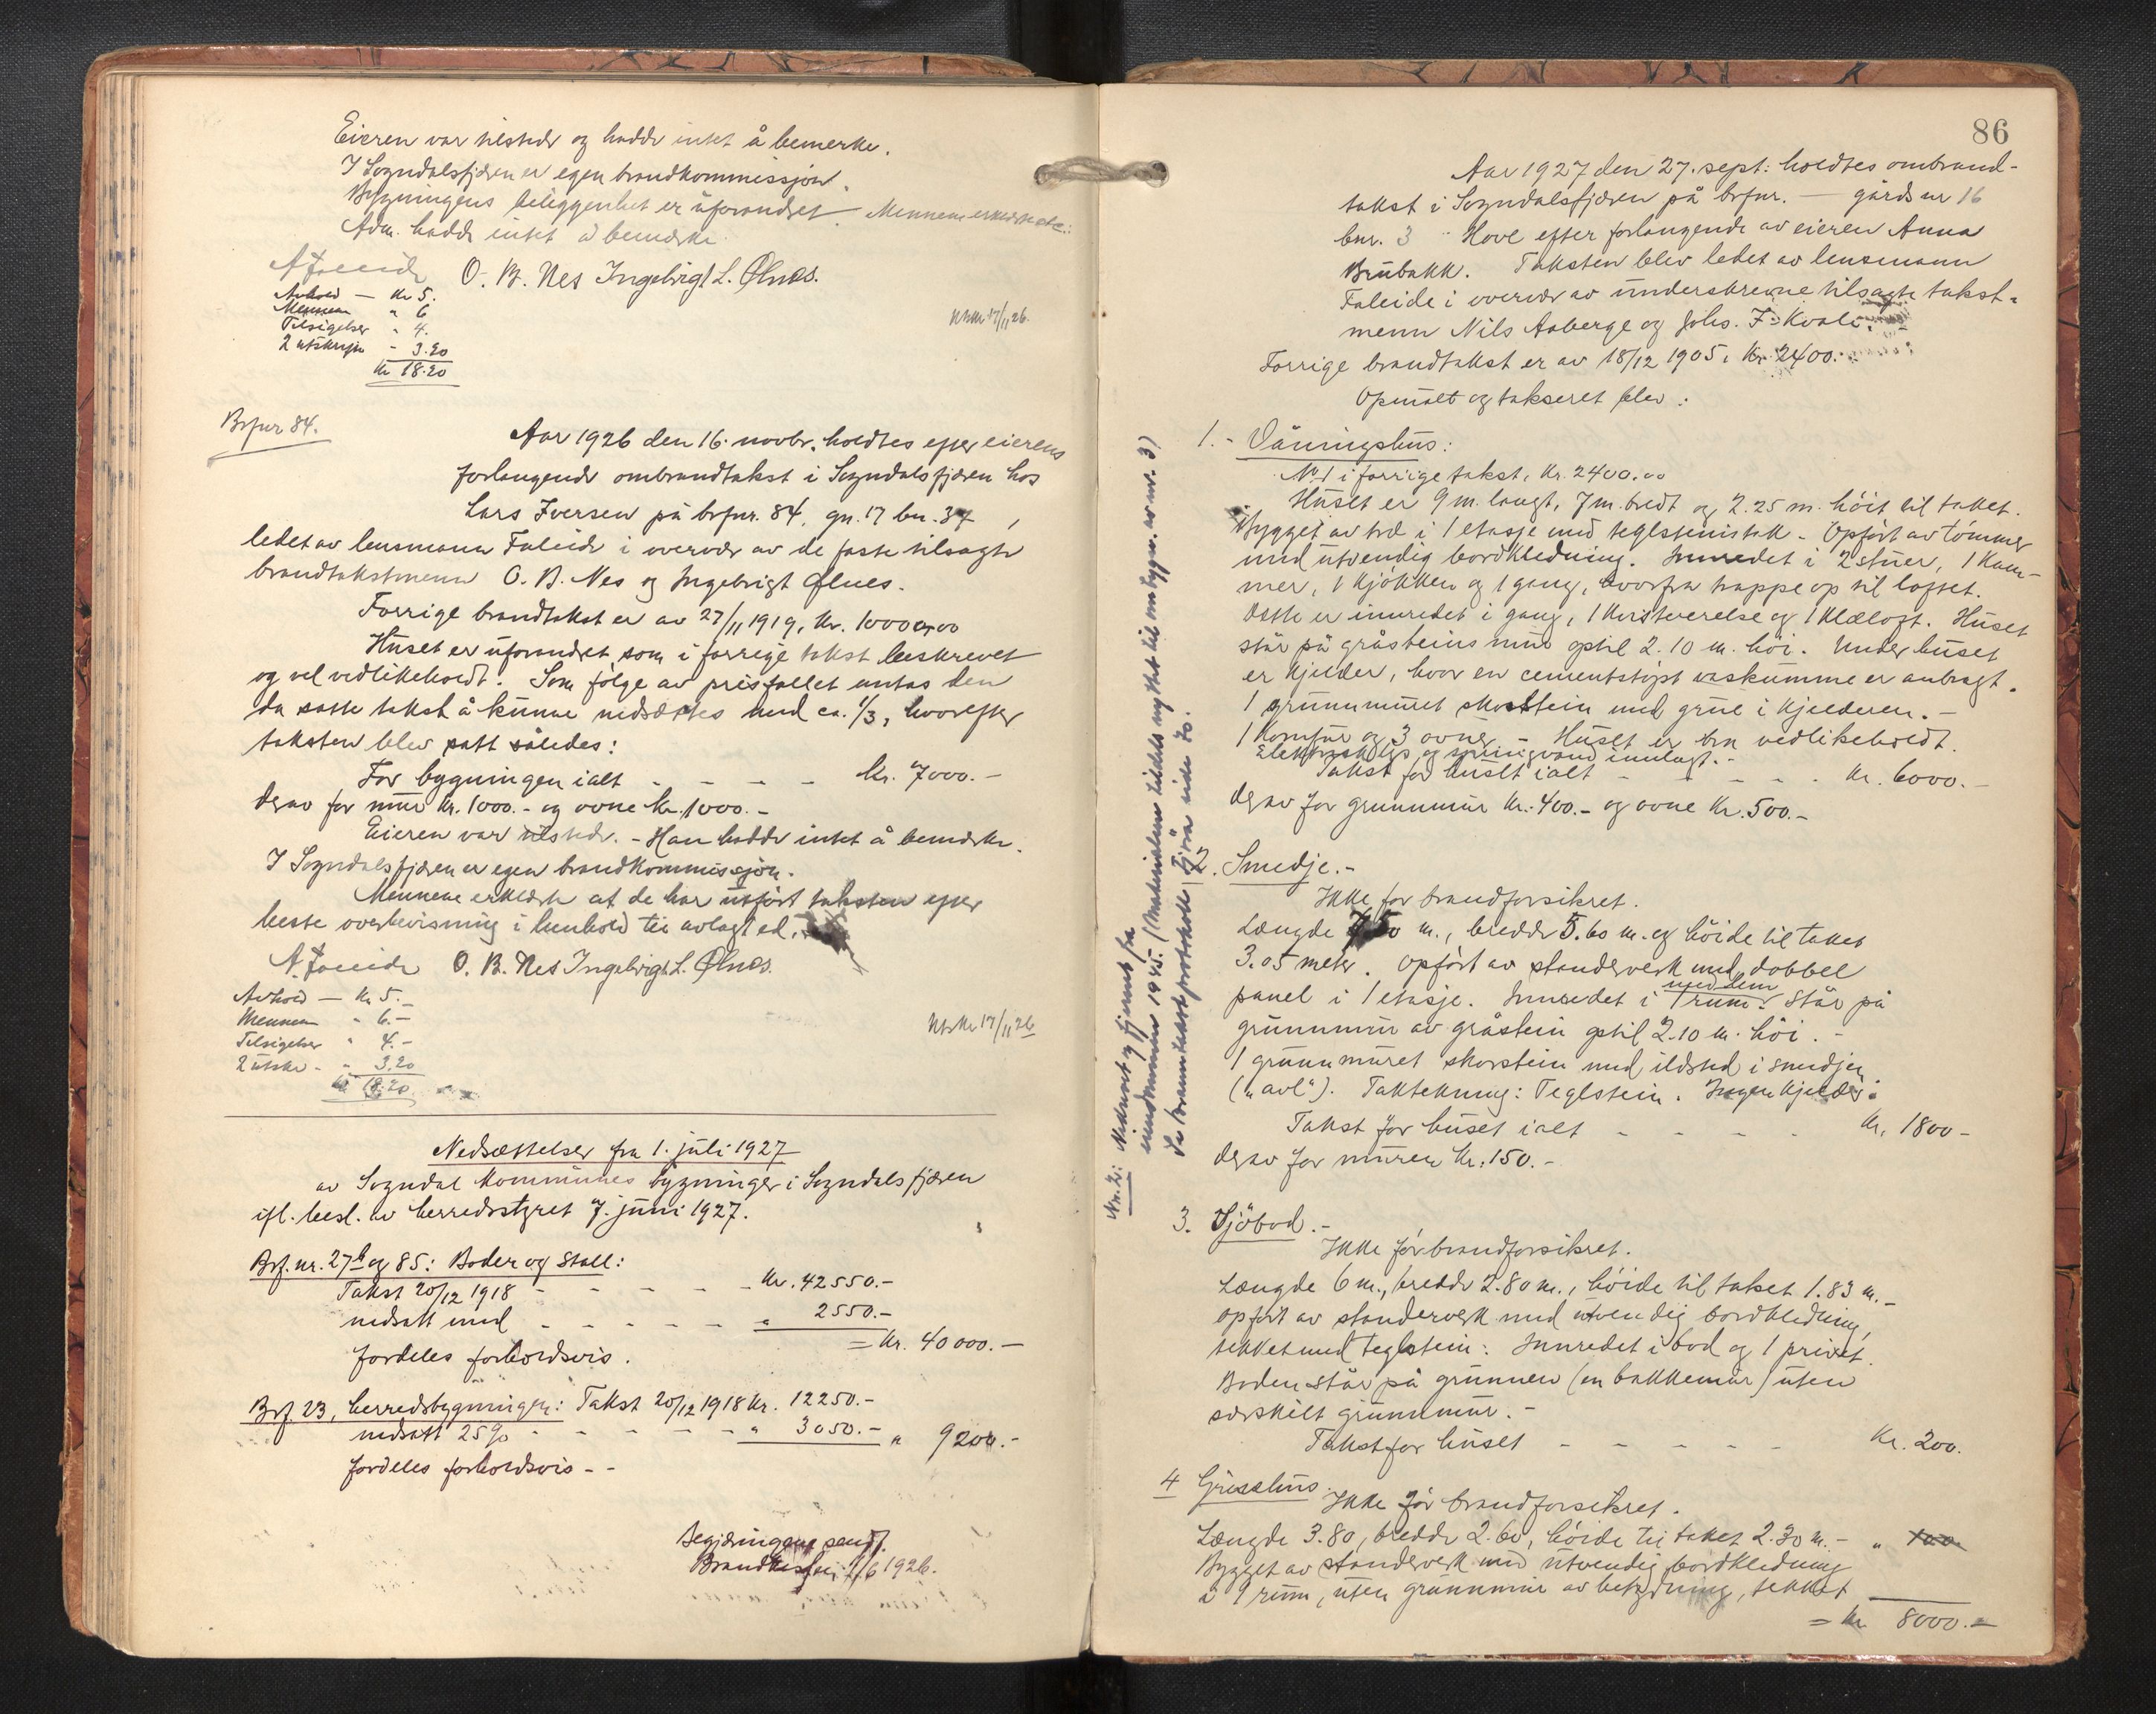 Eieren var tilstede og hadde intet å bemerke.
I Sogndalsfjæren er egen brandkommissjon.
Bygningens beliggenhet er uforandret – Mennene erklærte etc.:
Adm. hadde intet å bemerke.
A Faleide O. B. Nes Ingebrigt L. Ølnes.
Avhold — Kr 5.
Mennene " 6
Tilsigelser " 4.
2 utskrifter - 3.20
Kr 18.20
Utskr 17/11 26.
Brfnr 84.
Aar 1926 den 16. novbr. holdtes efter eierens
forlangende ombrandtakst i Sogndalsfjæren hos
Lars Iversen på brfnr. 84, gn. 17 bn. 37,
ledet av lensmann Faleide i overvær av de faste tilsagte
brandtakstmenn O. B. Nes og Ingebrigt Ølnes.
Forrige brandtakst er av 27/11 1919, kr. 10000,00
Huset er uforandret som i forrige takst beskrevet
og vel vedlikeholdt. Som følge av prisfallet antas den
da satte takst å kunne nedsættes med ca. 1/3, hvorefter
taksten blev satt således:
For bygningen ialt - - - - kr. 7000.-
derav for mur kr. 1000.- og ovne kr. 1000.-
Eieren var tilstede. - Han hadde intet å bemerke.
I Sogndalsfjæren er egen brandkommissjon.
Mennene erklærte at de har utført taksten efter
beste overbevisning i henhold til avlagt ed.
A. Faleide O. B. Nes Ingebrigt L. Ølnes.
Avhold — Kr 5.-
Mennene " 6.-
Tilsigelser " 4.-
2 utskr - " 3.20
Kr 18.20
Utskr 17/11 26
Nedsættelser fra 1. juli 1927
av Sogndal kommunes bygninger i Sogndalsfjæren
ifl. besl. av herredsstyret 7. juni 1927.
Brf. nr. 27b og 85: Boder og Stall:
Takst 20/12 1918 - - - - - Kr. 42550.-
nedsatt med - - - - - " 2550.-
= Kr. 40000.—
fordeles forholdsvis.
Brf. 23, herredsbygningen: Takst 20/12 1918 Kr. 12250.-
nedsatt 25% - - - - - " 3050.- " 9200.-
fordeles forholdsvis - -
Begjæringene sendt
1/6 1926.
86
Aar 1927 den 27. sept: holdtes ombrand-
takst i Sogndalsfjæren på brfnr. — gårdsnr 16
bnr. 3 Hove efter forlangende av eieren Anna
Brubakk. Taksten blev ledet av lensmann
Faleide i overvær av underskrevne tilsagte takst-
menn Nils Aaberge og Johs. F. Kvale.
Forrige brandtakst er av 18/12 1905, Kr. 2400.
Opmålt og taksert blev:
1.- Våningshus:
No 1 i forrige takst, Kr. 2400.00
Huset er 9 m. langt, 7 m. bredt og 2.25 m. høit til taket.
Bygget av træ i 1 etasje med teglsteinstak. Opført av tømmer
med utvendig bordkledning. Innredet i 2 stuer, 1 kam-
mer, 1 kjøkken og 1 gang, hvorfra trappe op til loftet.
Dette er innredet i gang, 1 kvistverelse og 1 klæloft. Huset
står på gråsteinsmur optil 2.10 m. høi. Under huset
er kjelder, hvor en cementstøpt vaskumme er anbragt.
1 grunnmuret skorstein med grue i kjelderen.-
1 komfur og 3 ovner - Huset er bra vedlikeholdt.
Elektrisk lys og springvand innlagt.-
Takst for huset ialt - - - - Kr. 6000.-
derav for grunnmur Kr. 400.- og ovne Kr. 500.-
2. Smedje.-
Ikke før brandforsikret.
Længde m., bredde 5.60 m. og høide til taket
3.05 meter. Opført av standerverk med dobbel
panel i 1 etasje. Innredet i 1 rum. Står på
grunnmur av gråstein optil 2.10 m. høi.-
1 grunnmuret skorstein med ildsted i smedjen
("avl"). Taktekning: Teglstein. Ingen kjelder.
Takst for huset ialt - - - - Kr. 1800-
derav for muren Kr. 150.-
3. Sjøbod.-
Ikke før brandforsikret.
Længde 6 m., bredde 2.80 m., høide til taket 1.83 m.-
opført av standerverk med utvendig bordkledning,
tekket med teglstein. Innredet i bod og 1 privet.
Boden står på grunnen (en bakkemur) uten
særskilt grunnmur.-
Takst for huset - - - - - Kr. 200.
4 Grisehus.
Ikke før brandforsikret.
Længde 3.80, bredde 2.60, høide til taket 2.30 m.- "
Bygget av standerverk med utvendig bordkledning
i 1 rum, uten grunnmur av betydning, tekket
= Kr 8000.-
Nr. 2: Nedrevet og fjernet fra
eiendommen 1945. (Materialene tildels nyttet til ombygn. av nr. 3)
Se branntakstprotokoll